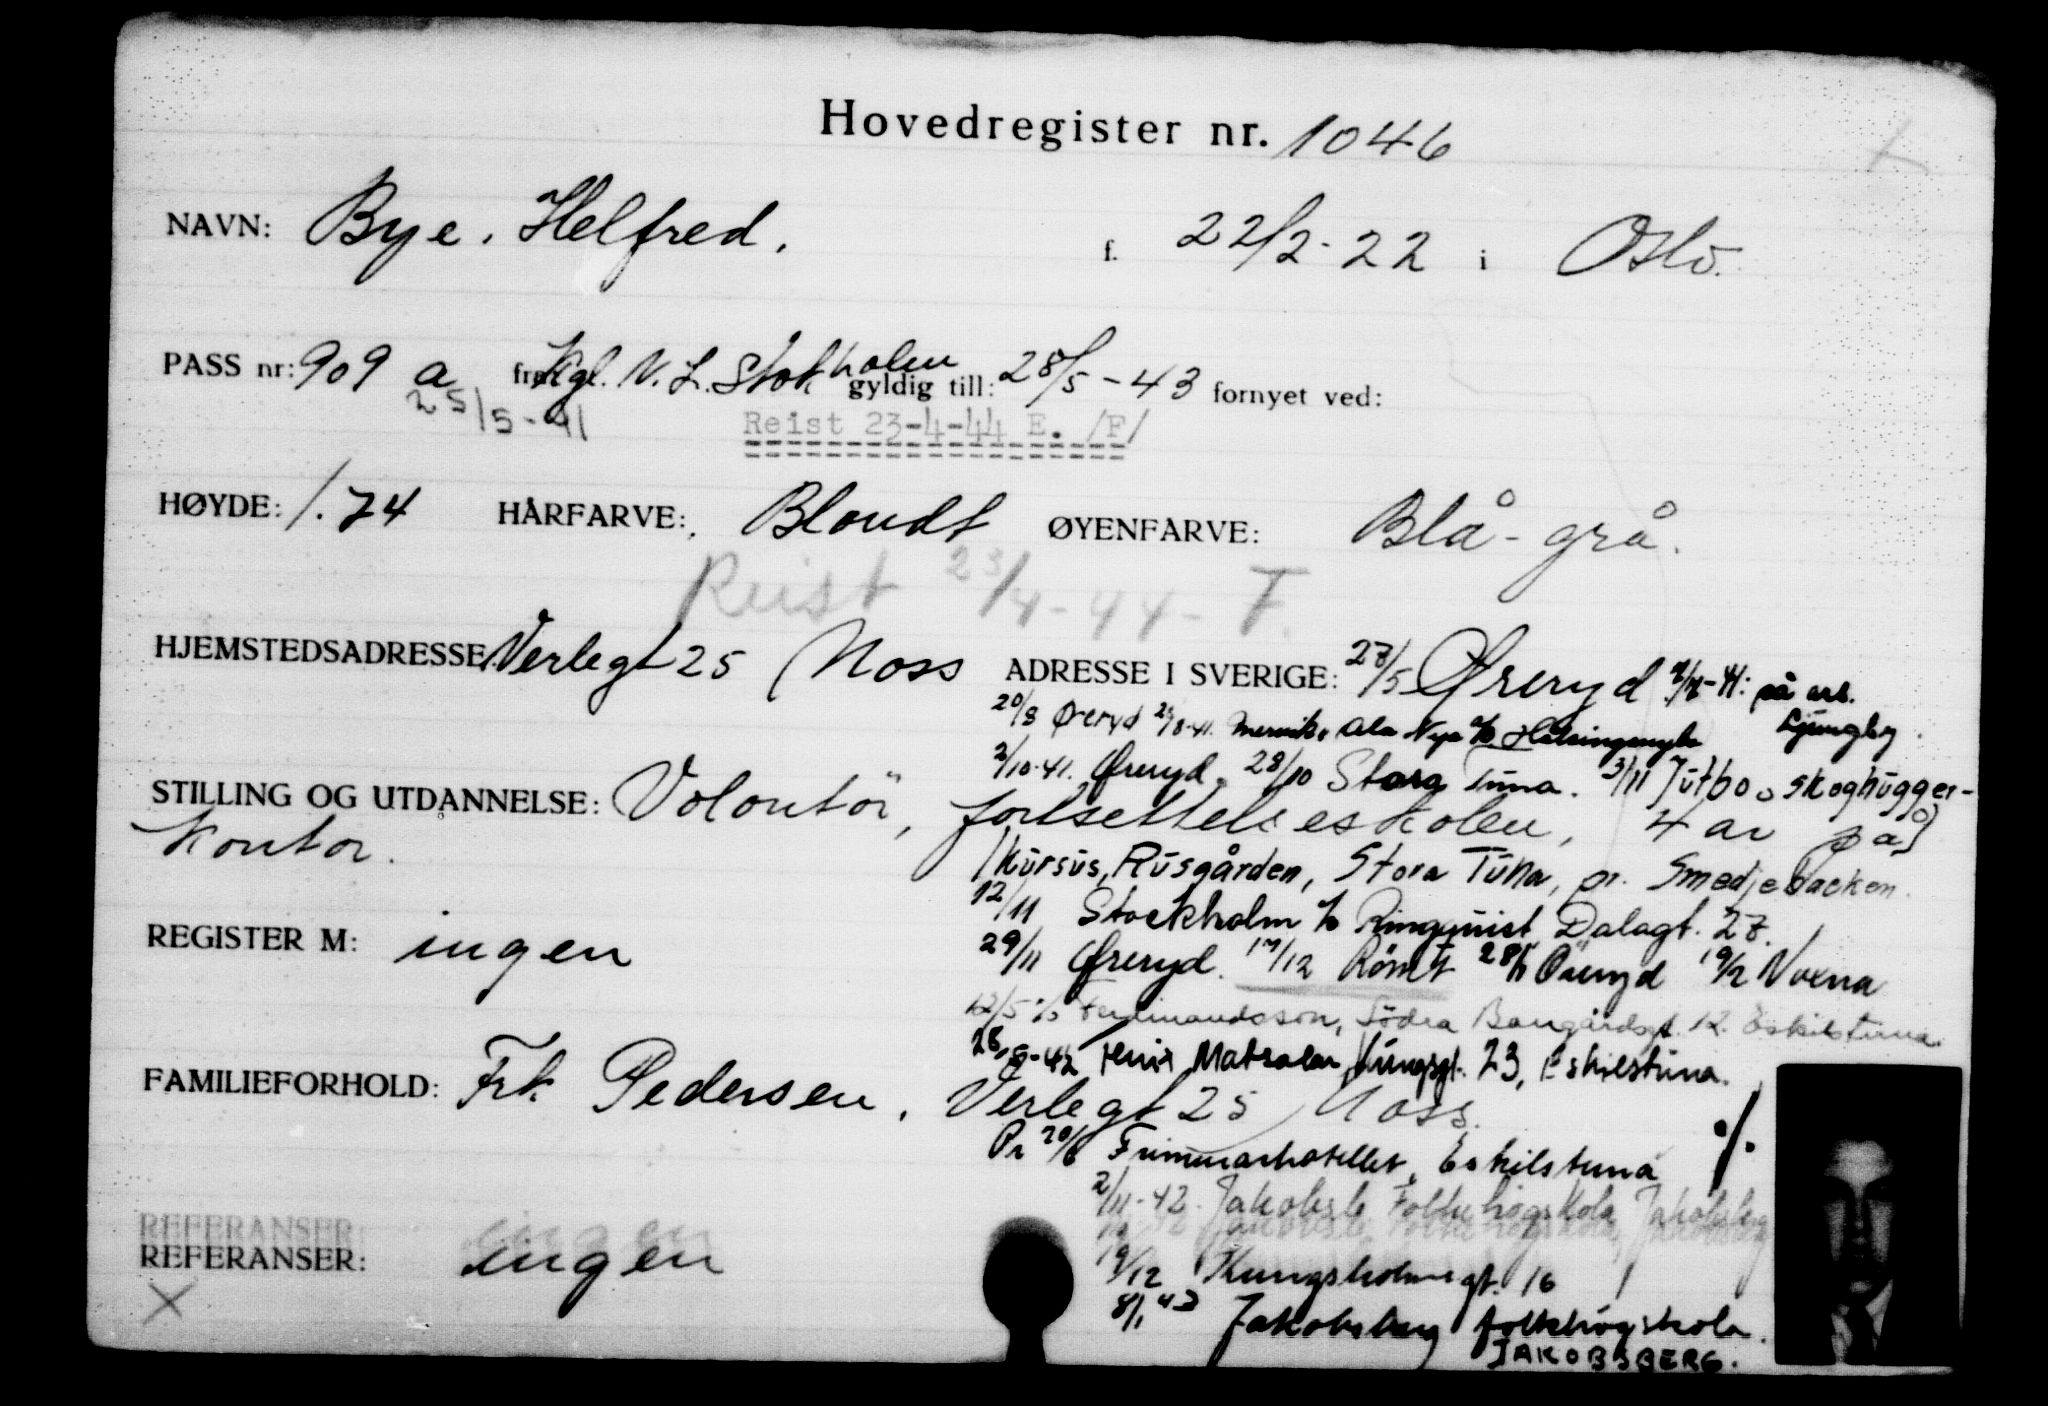 Hovedregister nr. 1046
NAVN: Bye. Helfred. f. 22/2-22 i Oslo.
PASS nr: 909 a fra: Kgl. N. L. Stokholm gyldig till: 28/5-43 fornyet ved:
25/5-41
Reist 23-4-44 E. /F/
HØYDE: 1.74 HÅRFARVE: Blondt ØYENFARVE: Blå-grå.
Reist 23/4-44- F.
HJEMSTEDSADRESSE Verlegt 25 Moss ADRESSE I SVERIGE: 27/5 Øreryd på arb. Ljungby.
20/8 Øreryd
2/10-41. Øreryd. 28/10 Stora Tuna. 3/11 Jutbo skoghugger-
STILLING OG UTDANNELSE: Volontör, fortsettelseskolen, 4 år på
kontor.
kursus, Rusgården, Stora Tuna, pr. Smedjebacken.
12/11 Stockholm c/o Ringquist Dalagt. 27.
REGISTER M: ingen
29/11 Øreryd. 17/12 Rømt 28/1 Öreryd 19/2 Voxna
12/5 c/o Ferdinandsson, Södra Bangårdsgt. 12. Eskilstuna.
Matsalar, Kungsgt. 23, Eskilstuna.
FAMILIEFORHOLD: Frk. Pedersen, Verlegt 25 Moss.
Pr 20/6 Frimurarhotellet, Eskilstuna
2/11-42. Jakobsb. Folkehögskola, Jakobsberg
REFERANSER:
REFERANSER: ingen
19/12 Kungsholmsgt. 16
8/1 43 Jakobsberg folkhögskola.
JAKOBSBERG.